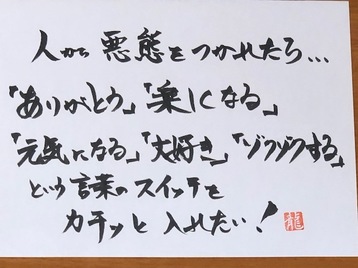 人から悪態をつかれたら…
「ありがとう」「楽しくなる」
「元気になる」「大好き」「ゾクゾクする」
という言葉のスイッチを
カチッと入れたい!
龍